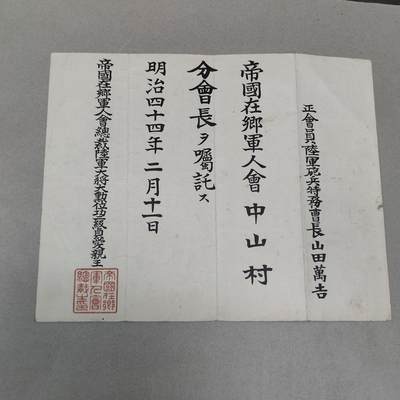 正會員陸軍砲兵特務曹長山田萬吉
帝國在鄉軍人會中山村
分會長ヲ囑託ス
明治四十四年二月十一日
帝國在鄉軍人會總裁陸軍大將大勳位功二級貞愛親王
帝國在鄉
軍人會
總裁章